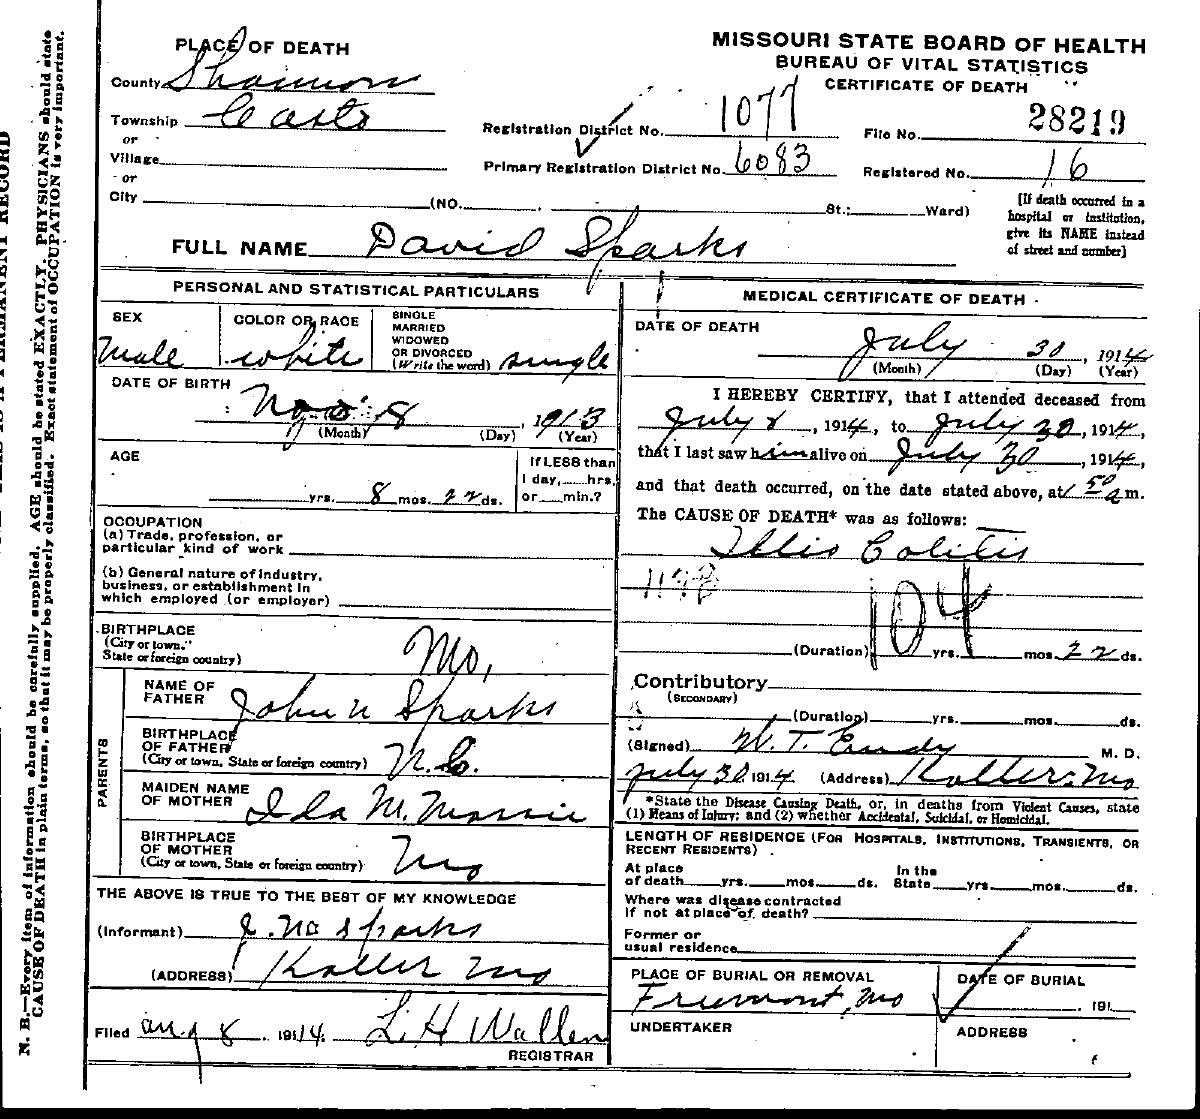 MISSOURI STATE BOARD OF HEALTH
BUREAU OF VITAL STATISTICS
CERTIFICATE OF DEATH
PLACE OF DEATH
County Shannon
Township
or
Village
or
City (NO. St.; Ward)
Registration District No. 1077
Primary Registration District No. 6083
File No. 28219
Registered No. 16
[If death occurred in a
hospital or institution,
give its NAME instead
of street and number]
FULL NAME David Sparks
PERSONAL AND STATISTICAL PARTICULARS
SEX
Male
COLOR OR RACE
white
SINGLE
MARRIED
WIDOWED
OR DIVORCED
(Write the word) single
DATE OF BIRTH
Nov 8, 1913
(Month) (Day) (Year)
AGE
yrs. 8 mos. 22 ds.
If LESS than
1 day, hrs.
or min.?
OCCUPATION
(a) Trade, profession, or
particular kind of work
(b) General nature of industry,
business, or establishment in
which employed (or employer)
BIRTHPLACE
(City or town,
State or foreign country) Mo.
PARENTS
NAME OF
FATHER John N Sparks
BIRTHPLACE
OF FATHER
(City or town, State or foreign country) N.C.
MAIDEN NAME
OF MOTHER Ida M. Massie
BIRTHPLACE
OF MOTHER
(City or town, State or foreign country) Mo
THE ABOVE IS TRUE TO THE BEST OF MY KNOWLEDGE
(Informant) J. No Sparks
(ADDRESS) Koller Mo
Filed Aug 8, 1914. L. H Wallen
REGISTRAR
MEDICAL CERTIFICATE OF DEATH
DATE OF DEATH
July 30, 1914
(Month) (Day) (Year)
I HEREBY CERTIFY, that I attended deceased from
July 8, 1914, to July 30, 1914,
that I last saw him alive on July 30, 1914,
and that death occurred, on the date stated above, at 1 50 a m.
The CAUSE OF DEATH* was as follows:
Illio Colitis
104
(Duration) yrs. mos. 22 ds.
Contributory
(SECONDARY)
(Duration) yrs. mos. ds.
(Signed) W. T. Eudy M. D.
July 30 1914 (Address) Koller Mo
*State the Disease Causing Death, or, in deaths from Violent Causes, state
(1) Means of Injury; and (2) whether Accidental, Suicidal, or Homicidal.
LENGTH OF RESIDENCE (FOR HOSPITALS, INSTITUTIONS, TRANSIENTS, OR
RECENT RESIDENTS)
At place
of death yrs. mos. ds.
In the
State yrs. mos. ds.
Where was disease contracted
if not at place of death?
Former or
usual residence
PLACE OF BURIAL OR REMOVAL
Fremont, Mo
DATE OF BURIAL
191
UNDERTAKER
ADDRESS
N. B.—Every item of information should be carefully supplied. AGE should be stated EXACTLY. PHYSICIANS should state
CAUSE OF DEATH in plain terms, so that it may be properly classified. Exact statement of OCCUPATION is very important.